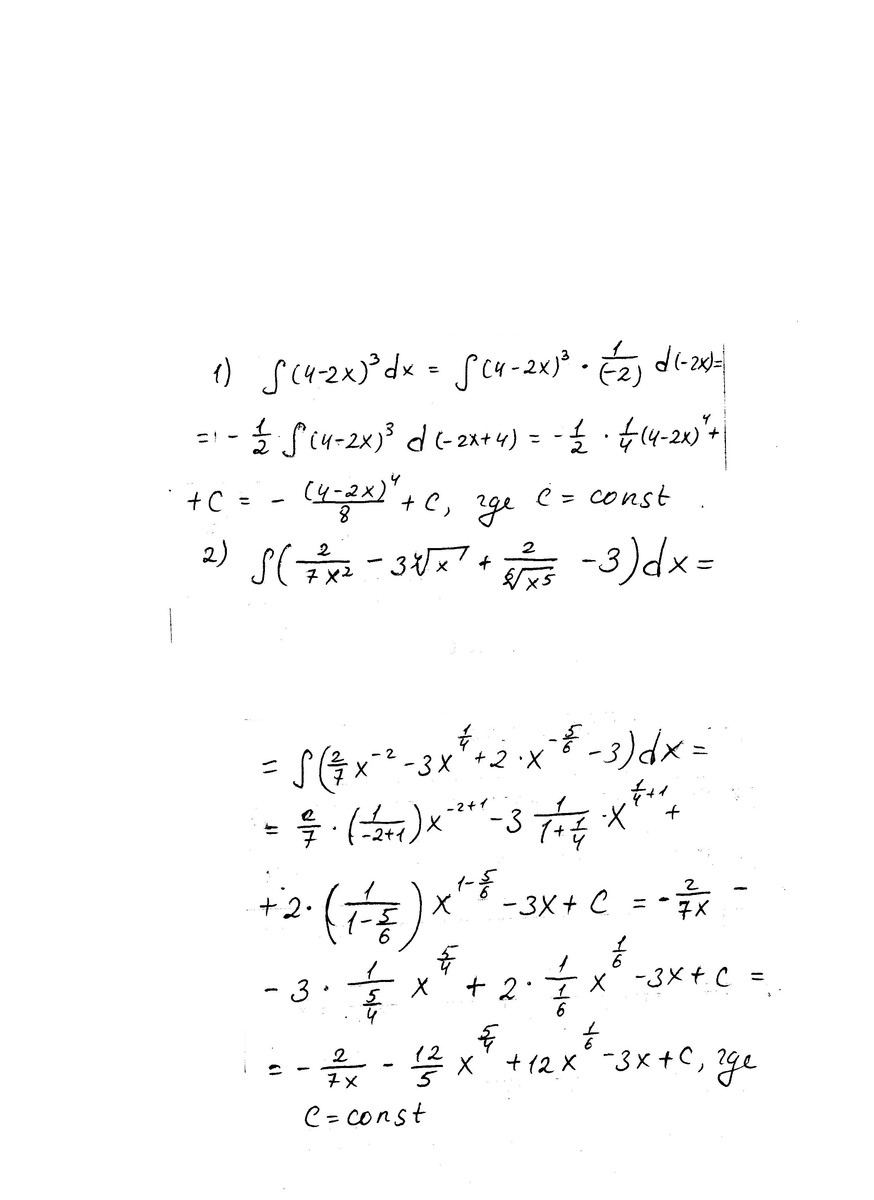 1) ∫(4-2x)³dx = ∫(4-2x)³ · 1/(-2) d(-2x)=
= - 1/2 ∫(4-2x)³ d(-2x+4) = - 1/2 · 1/4 (4-2x)⁴ +
+C = - (4-2x)⁴/8 + C, где C = const.
2) ∫(2/(7x²) - 3⁴√x + 2/⁶√(x⁵) - 3)dx =
= ∫(2/7 x^(-2) - 3x^(1/4) + 2·x^(-5/6) - 3)dx =
= 2/7 · (1/(-2+1)) x^(-2+1) - 3 1/(1+1/4) · x^(1/4+1) +
+ 2· (1/(1-5/6)) x^(1-5/6) - 3x + C = - 2/(7x) -
- 3 · 1/(5/4) x^(5/4) + 2 · 1/(1/6) x^(1/6) - 3x + C =
= - 2/(7x) - 12/5 x^(5/4) + 12x^(1/6) - 3x + C, где
C = const